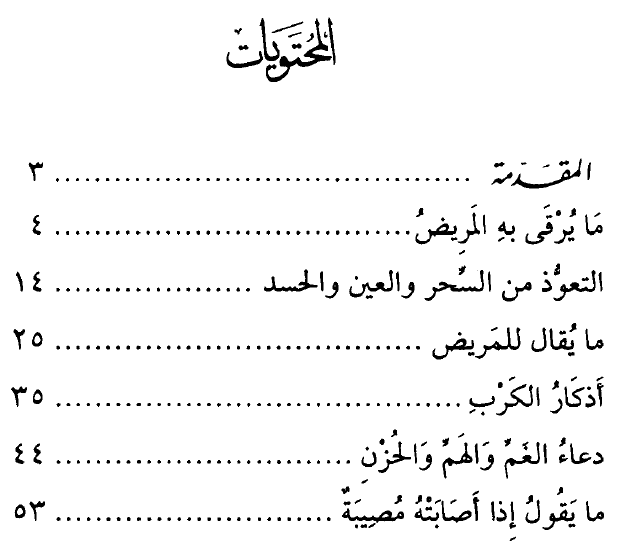 المُحْتَوَيات
المقَدّمة ........................................ ٣
مَا يُرْقَى بهِ المَرِيضُ.................................. ٤
التعوُّذ من السِّحر والعين والحسد .................. ١٤
ما يُقال للمَريض ................................... ٢٥
أَذكَارُ الكَرْبِ....................................... ٣٥
دعاءُ الغَمِّ وَالهَمِّ وَالحُزْنِ ............................ ٤٤
ما يَقُولُ إِذا أَصَابَتْهُ مُصِيبَةٌ .......................... ٥٣